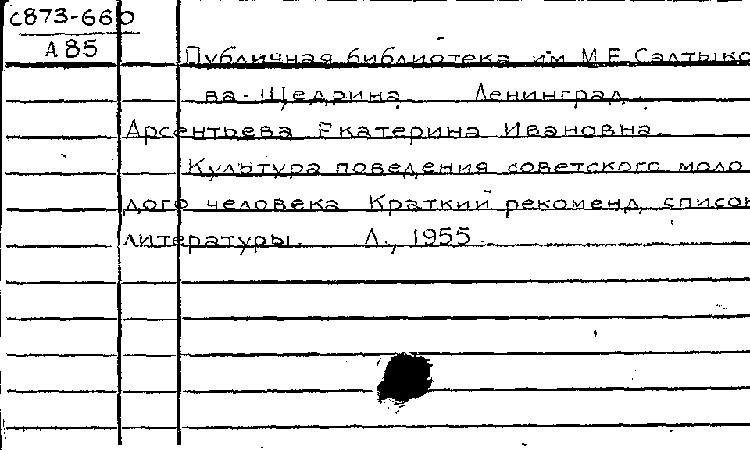 с873-660
А85
Публичная библиотека им М.Е.Салтыко
ва-Щедрина Ленинград.
Арсентьева Екатерина Ивановна.
Культура поведения советского моло
дого человека Краткий рекоменд. список
литературы. Л., 1955.